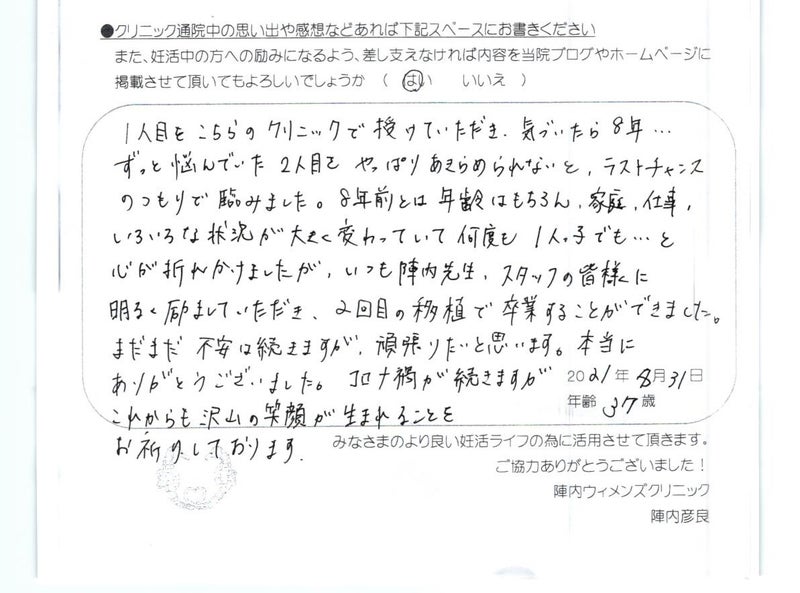 ●クリニック通院中の思い出や感想などあれば下記スペースにお書きください
また、妊活中の方への励みになるよう、差し支えなければ内容を当院ブログやホームページに
掲載させて頂いてもよろしいでしょうか （ はい いいえ ）
1人目をこちらのクリニックで授けていただき、気づいたら8年…
ずっと悩んでいた2人目を やっぱりあきらめられないと、ラストチャンス
のつもりで臨みました。8年前とは年齢はもちろん、家庭、仕事、
いろいろな状況が大きく変わっていて何度も1人っ子でも…と
心が折れかけましたが、いつも陣内先生、スタッフの皆様に
明るく励ましていただき、2回目の移植で卒業することができました。
まだまだ不安は続きますが、頑張りたいと思います。本当に
ありがとうございました。コロナ禍が続きますが
これからも沢山の笑顔が生まれることを
お祈りしております。
2021年8月31日
年齢 37歳
みなさまのより良い妊活ライフの為に活用させて頂きます。
ご協力ありがとうございました！
陣内ウィメンズクリニック
陣内彦良